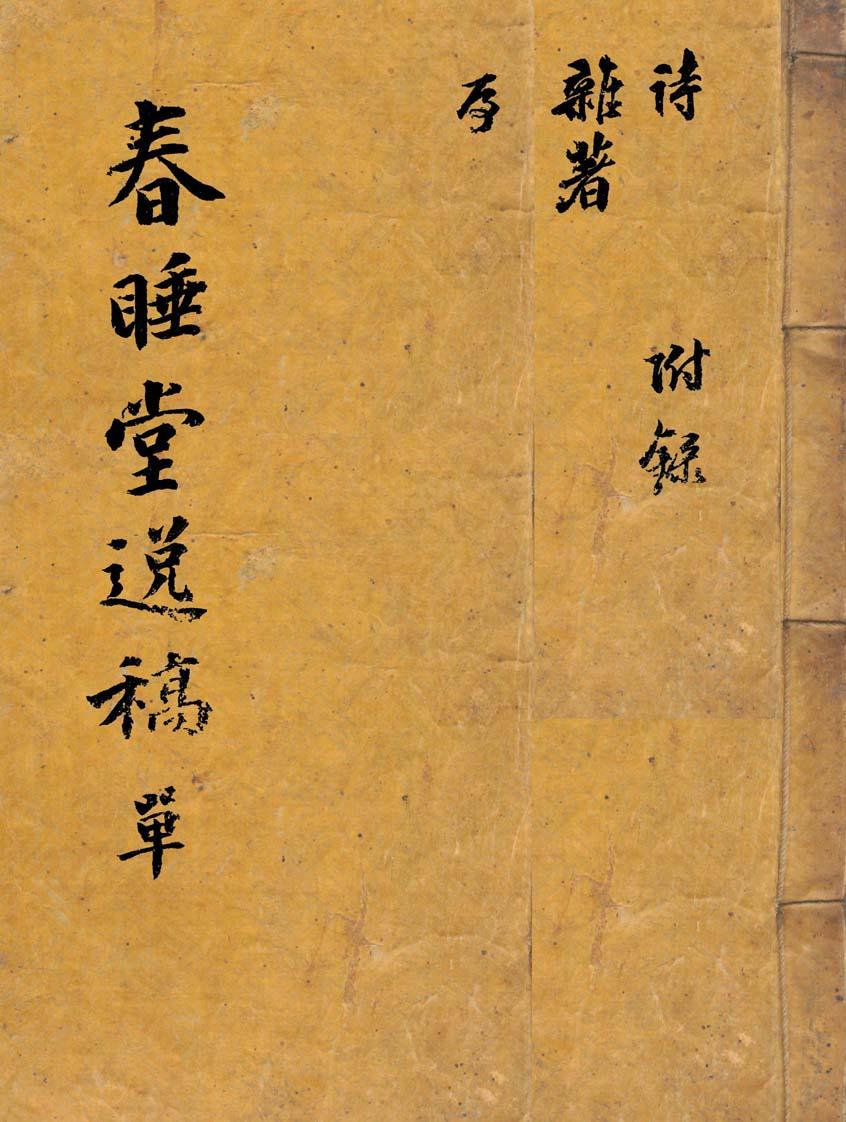 詩 附錄
雜著
序
春睡堂逸稿 單